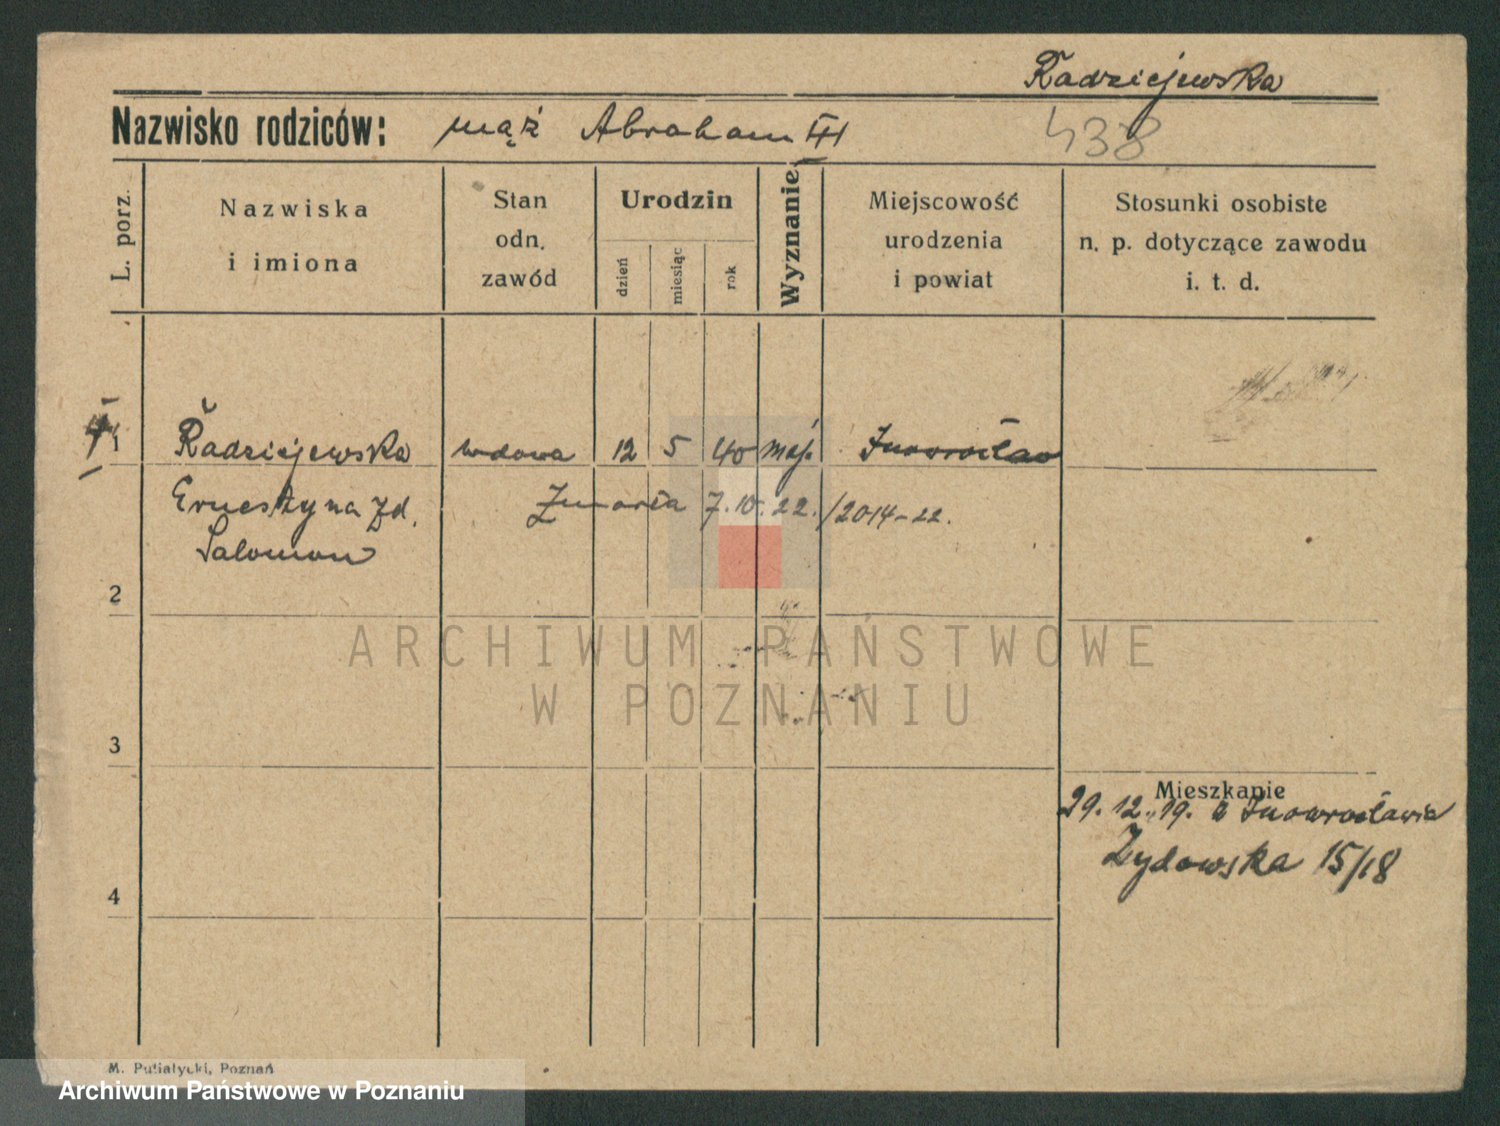 Radziejewska
Nazwisko rodziców: mąż Abraham III
438
L. porz.
Nazwiska
i imiona
Stan
odn.
zawód
Urodzin
dzień
miesiąc
rok
Wyznanie
Miejscowość
urodzenia
i powiat
Stosunki osobiste
n. p. dotyczące zawodu
i. t. d.
1 Radziejewska wdowa 12 5 40 mojż. Inowrocław
Ernestyna zd. Zmarła 7.10.22./2014-22.
Salomon
2
ARCHIWUM PAŃSTWOWE
W POZNANIU
3
Mieszkanie
29.12.19. z Inowrocławia
Żydowska 15/18
4
M. Putiatycki, Poznań
Archiwum Państwowe w Poznaniu